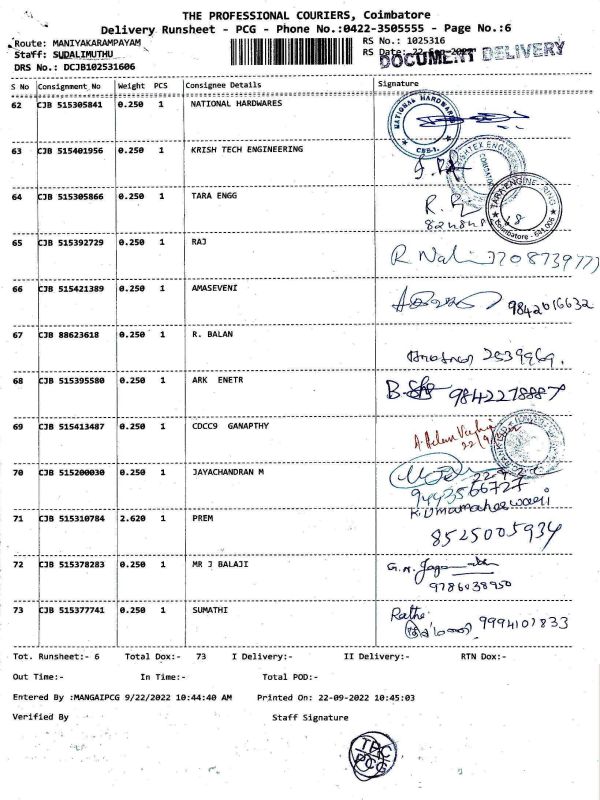 THE PROFESSIONAL COURIERS, Coimbatore
Delivery Runsheet - PCG - Phone No.:0422-3505555 - Page No.:6
Route: MANIYAKARAMPAYAM
RS No.: 1025316
Staff: SUDALIMUTHU
RS Date: 22-Sep-2022
DOCUMENT DELIVERY
DRS No.: DCJB102531606
S No Consignment_No Weight PCS Consignee Details Signature
62 CJB 515305841 0.250 1 NATIONAL HARDWARES
NATIONAL HARDWARE
63 CJB 515401956 0.250 1 KRISH TECH ENGINEERING
64 CJB 515305866 0.250 1 TARA ENGG
TARA ENGINEERING
Coimbatore - 641 006
65 CJB 515392729 0.250 1 RAJ
66 CJB 515421389 0.250 1 AMASEVENI
9842616632
67 CJB 88623618 0.250 1 R. BALAN
2539969.
68 CJB 515395580 0.250 1 ARK ENETR
9842278887
69 CJB 515413487 0.250 1 CDCC9 GANAPTHY
70 CJB 515200030 0.250 1 JAYACHANDRAN M
9443566727
71 CJB 515310784 2.620 1 PREM
K. Umamaheswari
8525005934
72 CJB 515378283 0.250 1 MR J BALAJI
9786038950
73 CJB 515377741 0.250 1 SUMATHI
9994101833
Tot. Runsheet:- 6 Total Dox:- 73 I Delivery:- II Delivery:- RTN Dox:-
Out Time:- In Time:- Total POD:-
Entered By :MANGAIPCG 9/22/2022 10:44:40 AM Printed On: 22-09-2022 10:45:03
Verified By Staff Signature
TPC
PCG